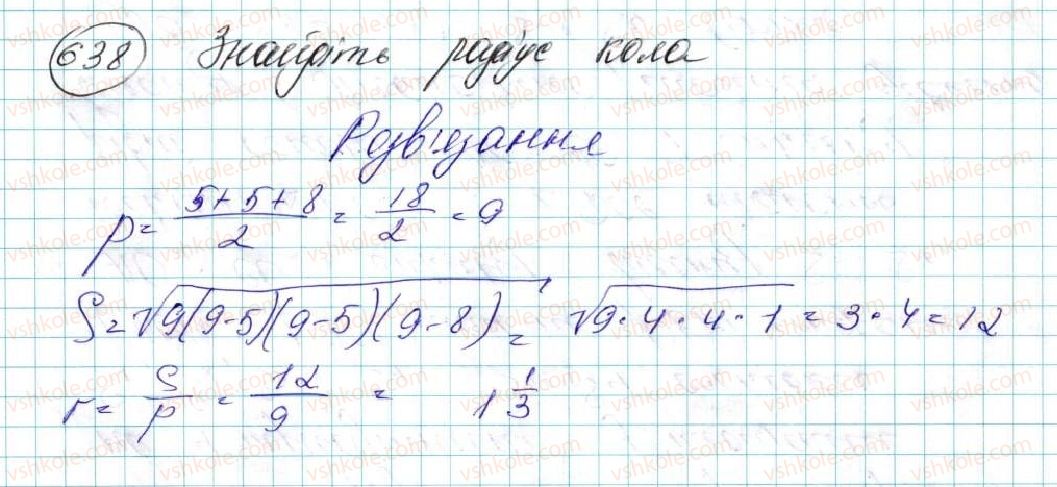 638 Знайдіть радіус кола
Розв'язання
p = (5+5+8)/2 = 18/2 = 9
S = √(9(9-5)(9-5)(9-8)) = √(9·4·4·1) = 3·4 = 12
r = S/p = 12/9 = 1 1/3